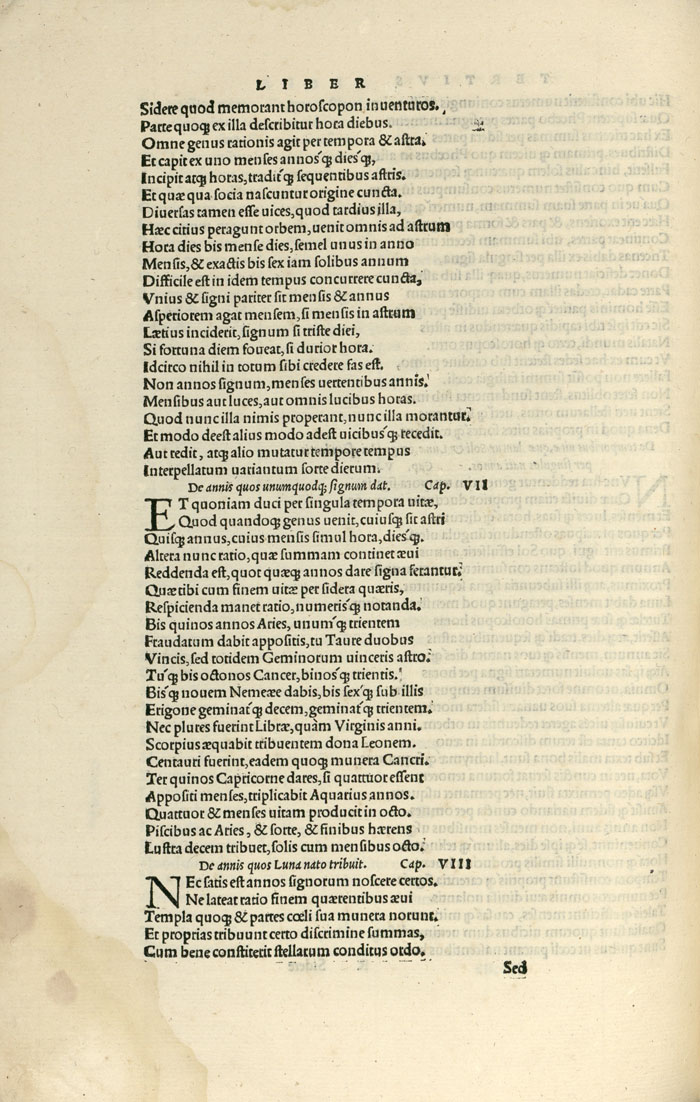 LIBER
Sidere quod memorant horoscopon inuenturos.
Parte quoqꝫ ex illa describitur hora diebus.
Omne genus rationis agit per tempora & astra.
Et capit ex uno menses annosꝗ́ꝫ diesꝗ́ꝫ,
Incipit atqꝫ horas, traditꝗ́ꝫ sequentibus astris.
Et quæ qua socia nascuntur origine cuncta.
Diuersas tamen esse uices, quod tardius illa,
Hæc citius peragunt orbem, uenit omnis ad astrum
Hora dies bis mense dies, semel unus in anno
Mensis, & exactis bis sex iam solibus annum
Difficile est in idem tempus concurrere cuncta,
Vnius & signi pariter sit mensis & annus
Asperiorem agat mensem, si mensis in astrum
Lætius inciderit, signum si triste diei,
Si fortuna diem foueat, si durior hora.
Idcirco nihil in totum sibi credere fas est.
Non annos signum, menses uertentibus annis.
Mensibus aut luces, aut omnis lucibus horas.
Quod nunc illa nimis properant, nunc illa morantur.
Et modo deest alius modo adest uicibusꝗ́ꝫ recedit.
Aut redit, atqꝫ alio mutatur tempore tempus
Interpellatum uariantum sorte dierum.
De annis quos unumquodqꝫ signum dat. Cap. VII
ET quoniam duci per singula tempora uitæ,
Quod quandoqꝫ genus uenit, cuiusqꝫ sit astri
Quisqꝫ annus, cuius mensis simul hora, diesꝗ́ꝫ.
Altera nunc ratio, quæ summam continet æui
Reddenda est, quot quæqꝫ annos dare signa ferantur.
Quæ tibi cum finem uitæ per sidera quæris,
Respicienda manet ratio, numerisꝗ́ꝫ notanda.
Bis quinos annos Aries, unumꝗ́ꝫ trientem
Fraudatum dabit appositis, tu Taure duobus
Vincis, sed totidem Geminorum uinceris astro.
Tuꝗ́ꝫ bis octonos Cancer, binosꝗ́ꝫ trientis.
Bisꝗ́ꝫ nouem Nemeæe dabis, bis sexꝗ́ꝫ sub illis
Erigone geminatꝗ́ꝫ decem, geminatꝗ́ꝫ trientem.
Nec plures fuerint Libræ, quàm Virginis anni.
Scorpius æquabit tribuentem dona Leonem.
Centauri fuerint, eadem quoqꝫ munera Cancri.
Ter quinos Capricorne dares, si quattuor essent
Appositi menses, triplicabit Aquarius annos.
Quattuor & menses uitam producit in octo.
Piscibus ac Aries, & sorte, & finibus hærens
Lustra decem tribuet, solis cum mensibus octo.
De annis quos Luna nato tribuit. Cap. VIII
NEc satis est annos signorum noscere certos.
Ne lateat ratio finem quærentibus æui
Templa quoqꝫ & partes cœli sua munera norunt.
Et proprias tribuunt certo discrimine summas,
Cum bene constiterit stellarum conditus ordo.
Sed